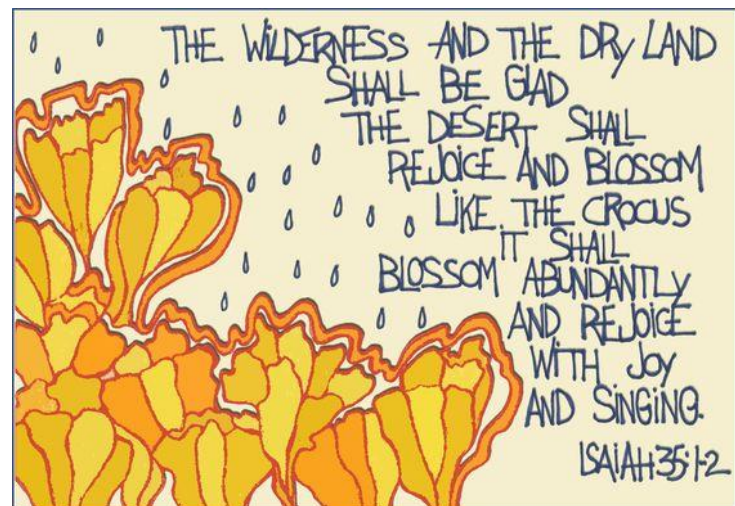 THE WiLDERNESS AND THE DRy LAND
SHALL BE GLAD
THE DESERT SHALL
REJOiCE AND BLOSSOM
LiKE THE CROCUS
iT SHALL
BLOSSOM ABUNDANTLy
AND REJOiCE
WiTH JOy
AND SiNGiNG.
ISAiAH 35:1-2